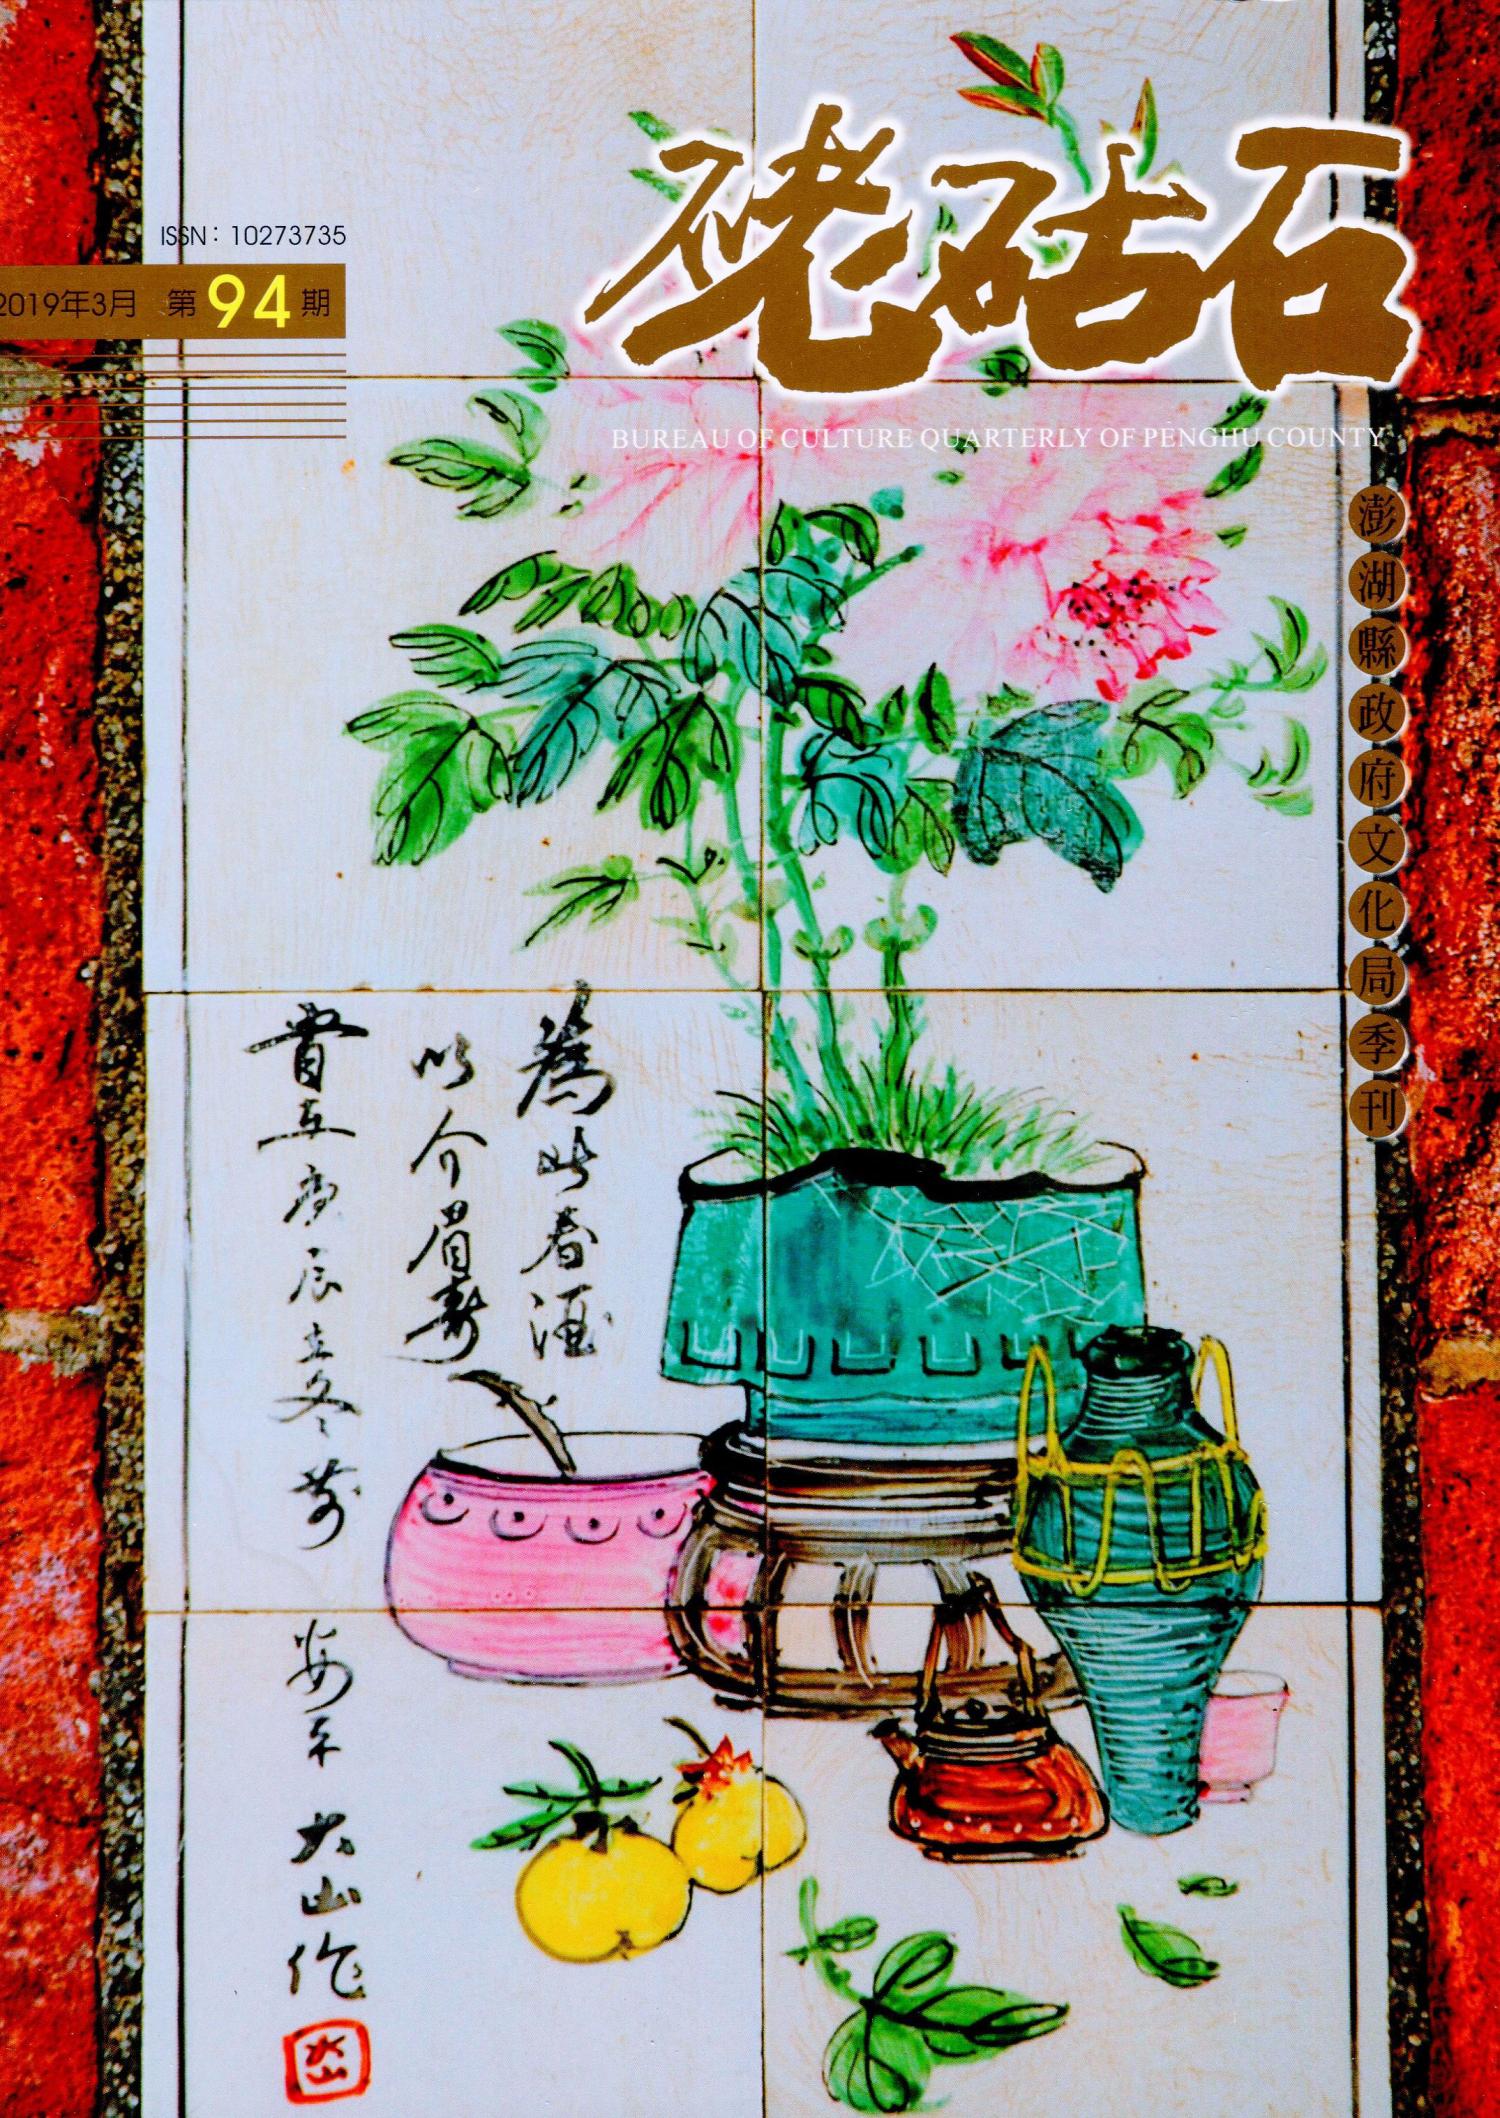 硓𥑮石
ISSN：10273735
2019年3月 第94期
BUREAU OF CULTURE QUARTERLY OF PENGHU COUNTY
澎湖縣政府文化局季刊
為此春酒
以介眉壽
庚辰立冬前
大山作